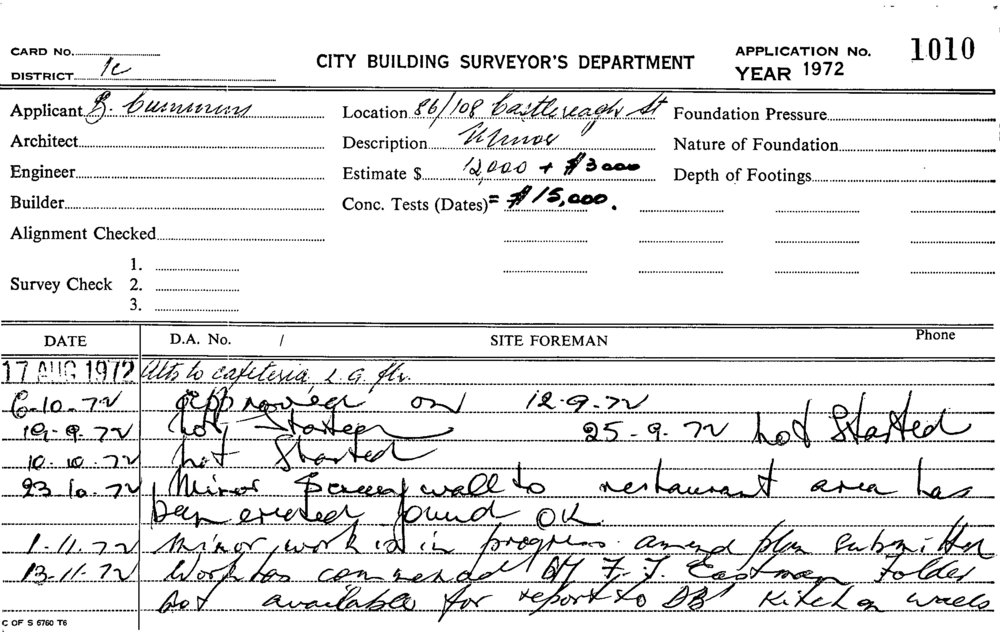 CARD No.
DISTRICT 1c
CITY BUILDING SURVEYOR'S DEPARTMENT
APPLICATION No. 1010
YEAR 1972
Applicant Cummins
Location 86/108 Castlereagh St
Foundation Pressure
Architect
Description Minor
Nature of Foundation
Engineer
Estimate $ 12,000 + $3000
Depth of Footings
Builder
Conc. Tests (Dates) = $15,000.
Alignment Checked
1.
Survey Check 2.
3.
DATE D.A. No. / SITE FOREMAN Phone
17 AUG 1972 Alts to cafeteria, L.G. flr.
6-10-72 approved on 12-9-72
19-9-72 not started 25-9-72 not started
10-10-72 not started
23-10-72 Minor wall to restaurant area has
been erected found OK.
1-11-72 minor work is in progress. amend plan submitted
13-11-72 Work has commenced by F. J. Eastman Folder
not available for report to DBS Kitchen walls
C OF S 6760 T6